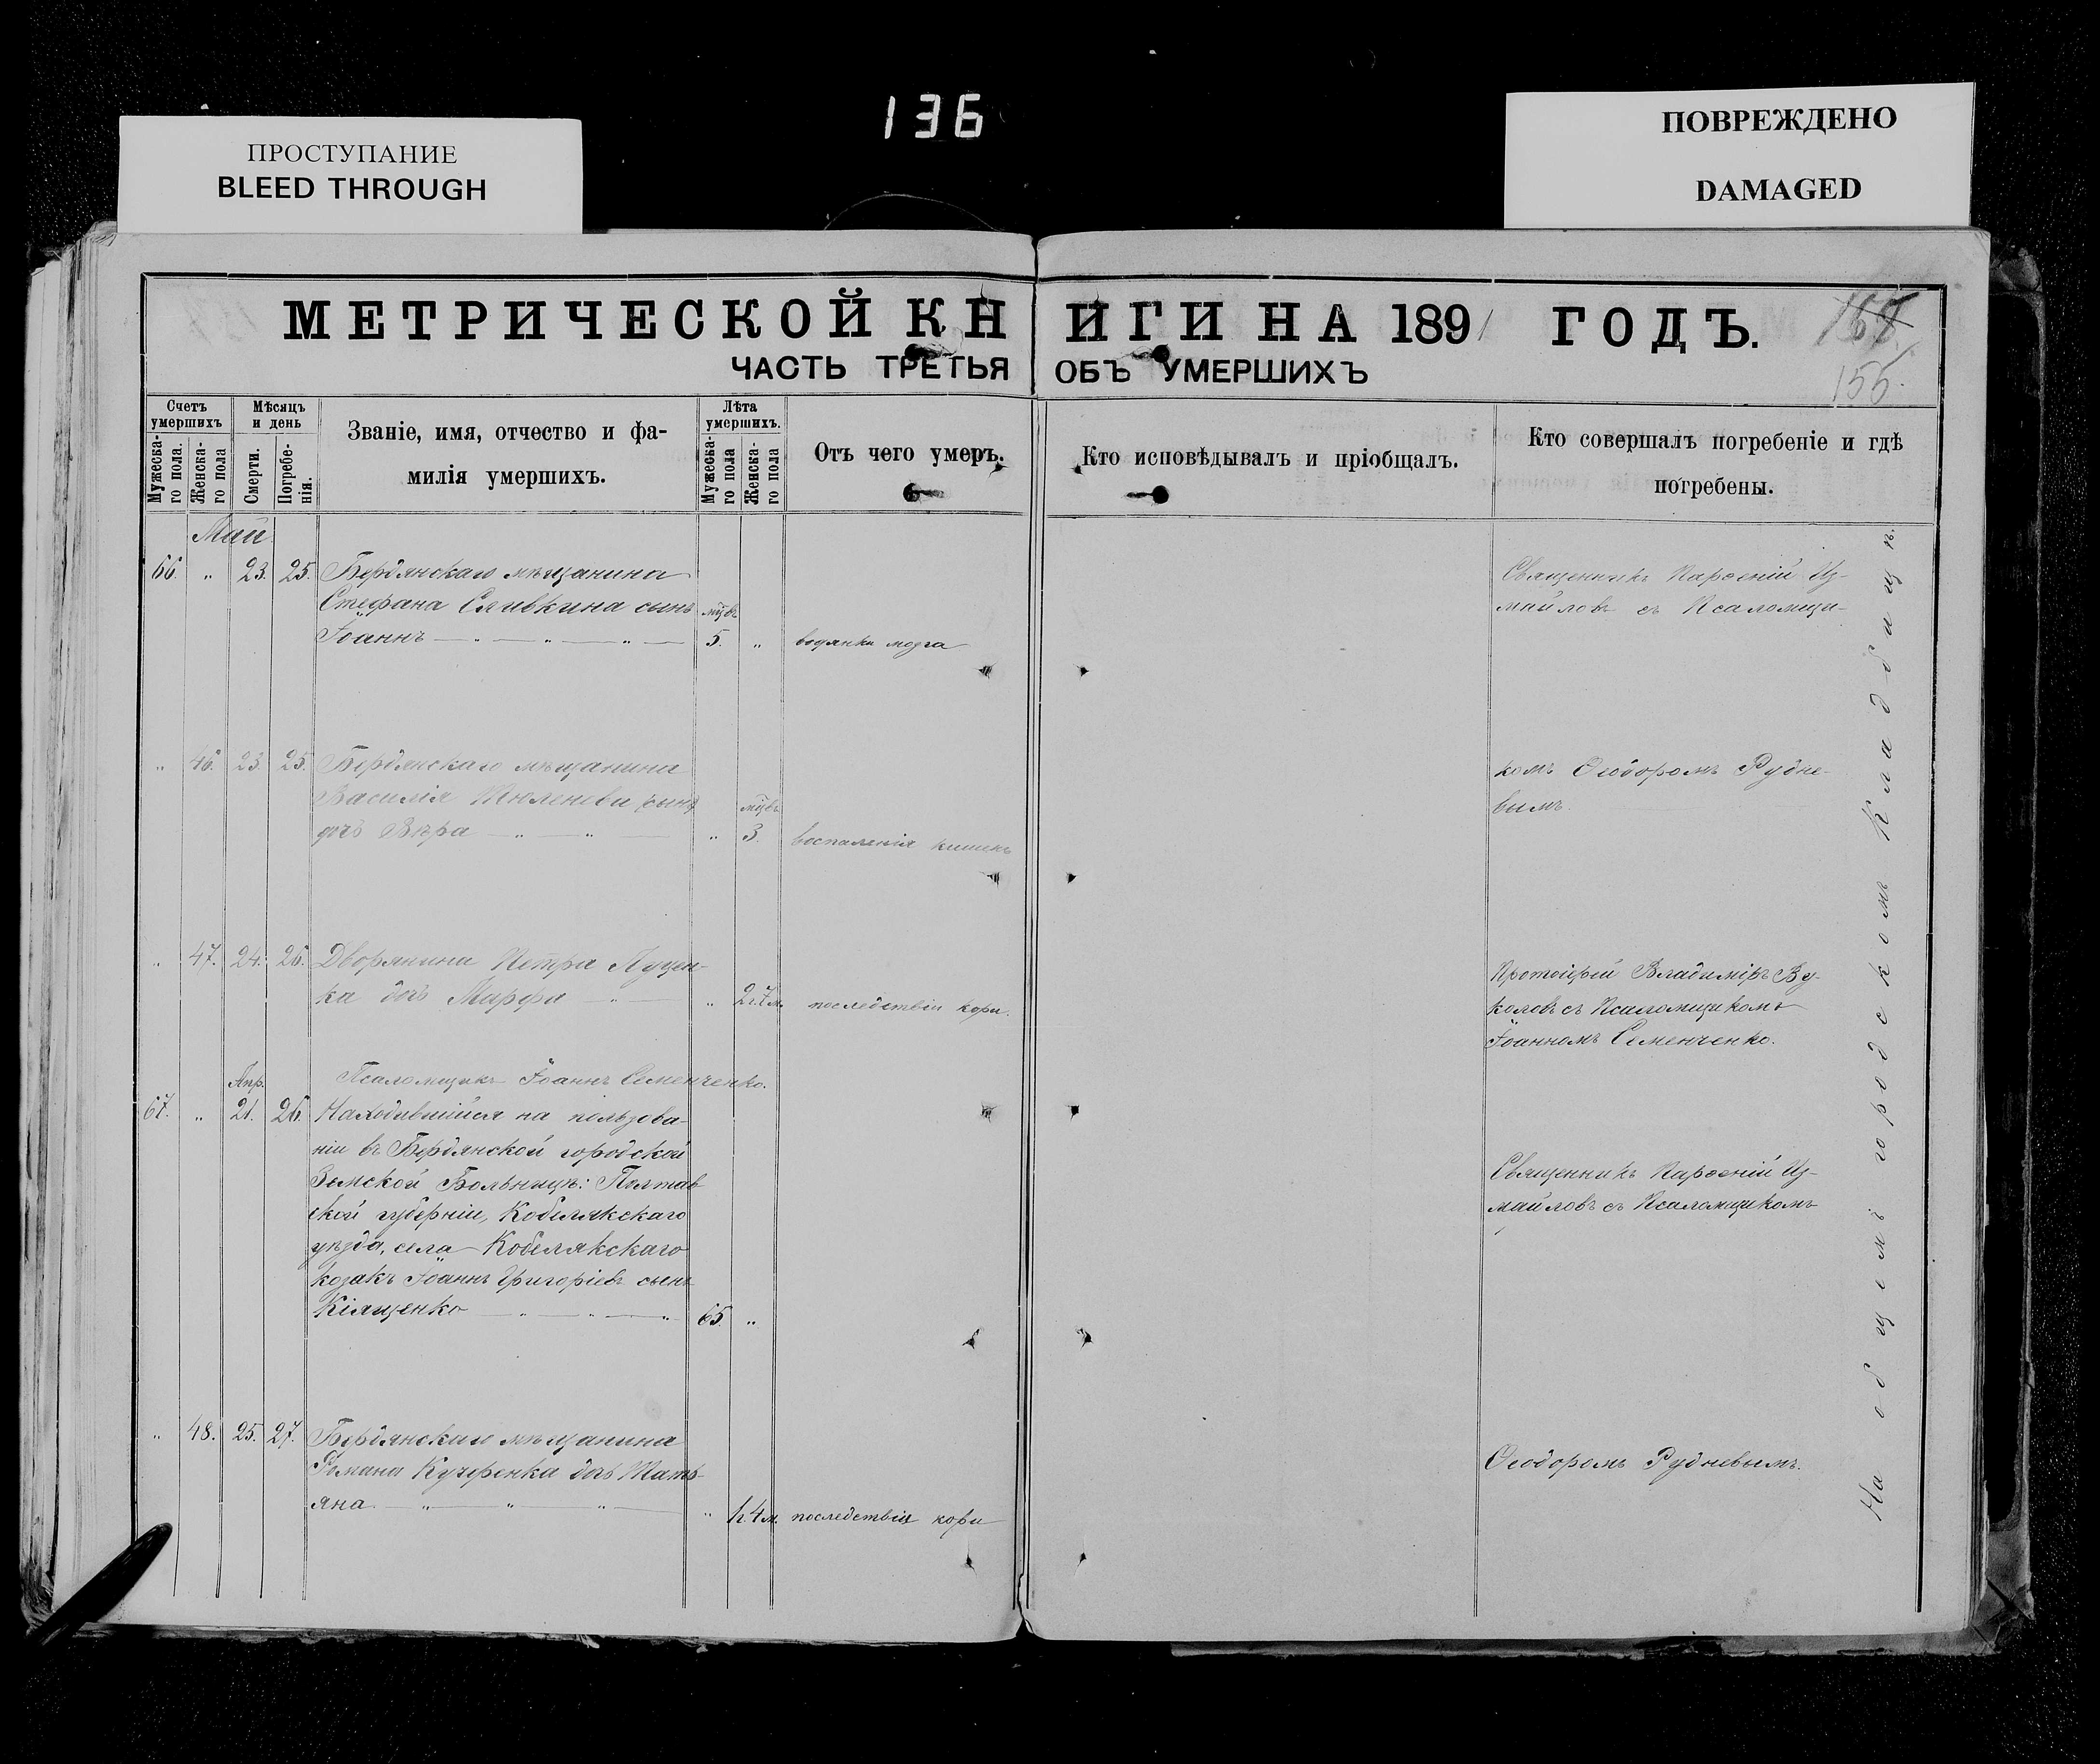 136
ПРОСТУПАНИЕ
BLEED THROUGH
ПОВРЕЖДЕНО
DAMAGED
МЕТРИЧЕСКОЙ КНИГИ НА 1891 ГОДЪ.
ЧАСТЬ ТРЕТЬЯ ОБЪ УМЕРШИХЪ
155.
Счетъ умершихъ
Мужеска-го пола.
Женска-го пола
Мѣсяцъ и день
Смерти.
Погребе-нія.
Званіе, имя, отчество и фа-
милія умершихъ.
Лѣта умершихъ.
Мужеска-го пола
Женска-го пола
Отъ чего умеръ.
Кто исповѣдывалъ и пріобщалъ.
Кто совершалъ погребеніе и гдѣ
погребены.
Май
66. „ 23. 25. Бердянскаго мѣщанина
Стефана Сливкина сынъ
Іоаннъ — „ — „ — „ — 5. „ водянки мозга
Священникъ Парѳеній Из-
майловъ съ Псаломщи-
„ 46. 23. 25. Бердянскаго мѣщанина
Василія Тюленева (сынъ)
дочь Вѣра — „ — „ — „ 3. воспаленія кишекъ
комъ Ѳеодоромъ Рудне-
вымъ.
„ 47. 24. 26. Дворянина Петра Луцен-
ка дочь Марфа — „ — „ 2 г. 7 м. последствіи кори.
Протоіерей Владиміръ Ву-
коловъ съ Псаломщикомъ
Іоанномъ Семенченко.
Псаломщикъ Іоаннъ Семенченко.
Апр.
67. „ 21. 26. Находившійся на пользова-
ніи въ Бердянской городской
Земской Больницѣ: Полтав-
ской губерніи, Кобелякскаго
уѣзда, села Кобелякскаго
козакъ Іоаннъ Григоріевъ сынъ
Кіященко — „ — „ — „ 65. „
Священникъ Парѳеній Из-
майловъ съ Псаломщикомъ
„ 48. 25. 27. Бердянскаго мѣщанина
Романа Кучеренка дочь Тать-
яна. — „ — „ — „ — „ 1 г. 4 м. последствія кори
Ѳеодоромъ Рудневымъ.
На общемъ городскомъ кладбищѣ.